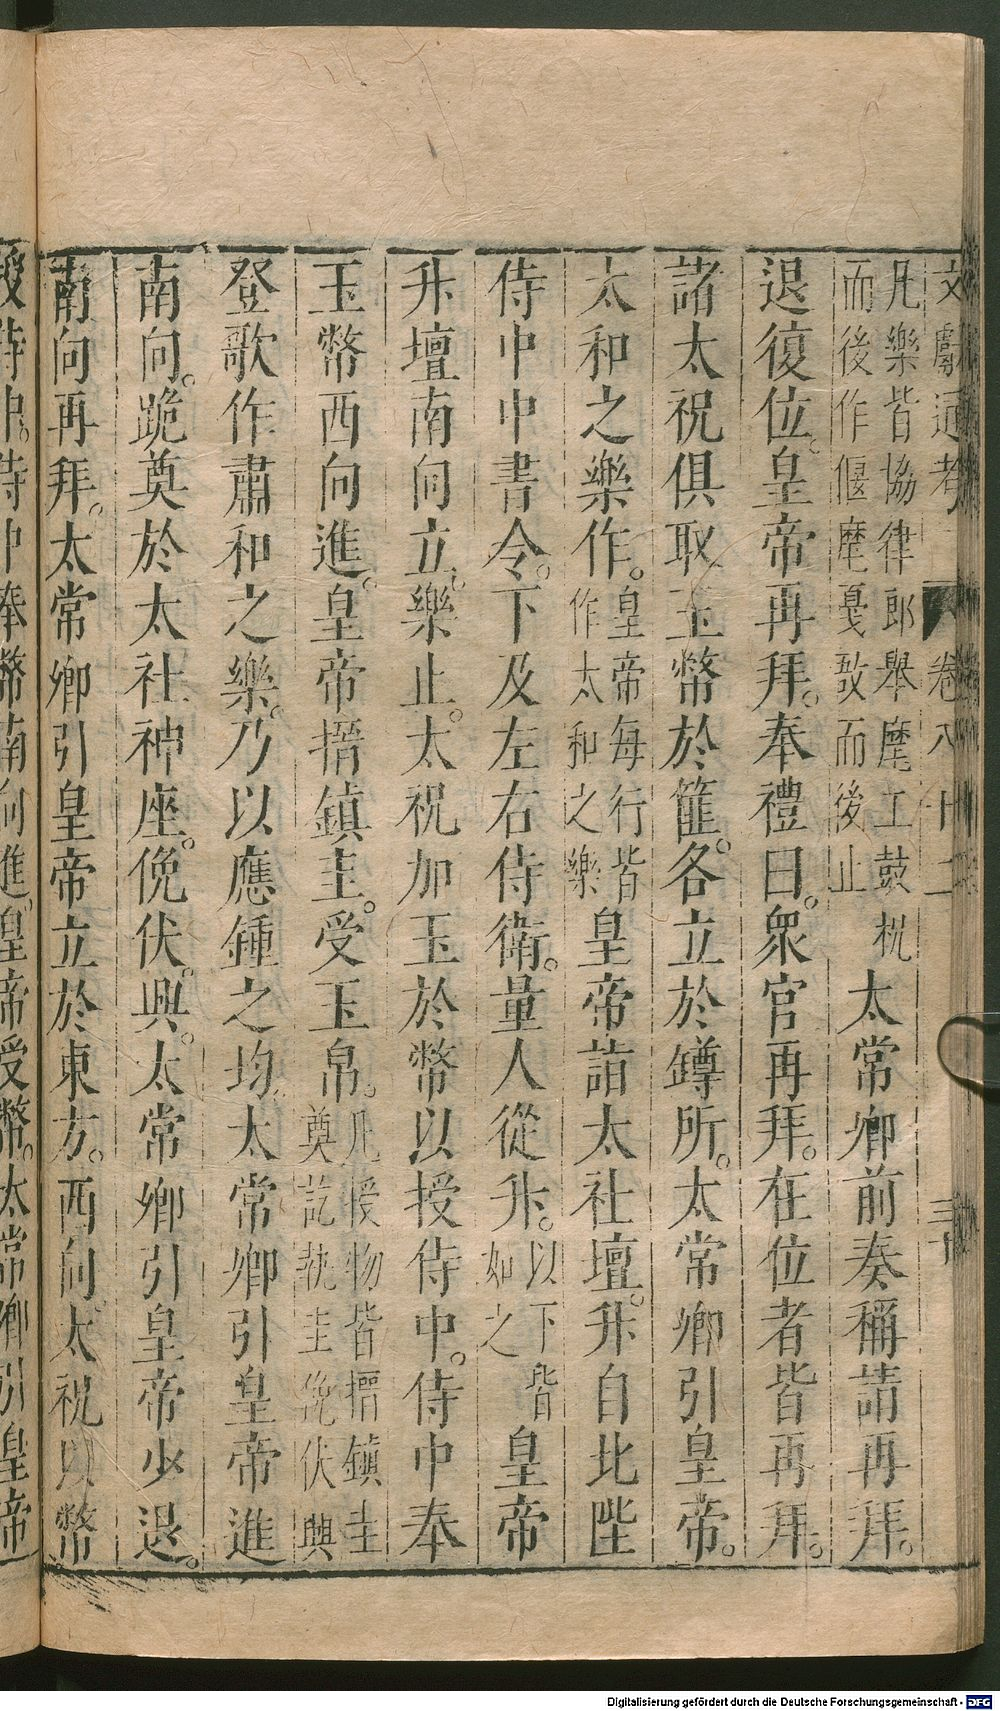 文獻通考 卷八十二
凡樂皆協律郎舉麾工鼓柷
而後作偃麾戛敔而後止
太常卿前奏稱請再拜。
退復位。皇帝再拜。奉禮曰。衆官再拜。在位者皆再拜。
諸太祝俱取玉幣於篚。各立於罇所。太常卿引皇帝。
太和之樂作。
皇帝每行皆
作太和之樂
皇帝詣太社壇。升自北陛
侍中中書令。下及左右侍衛。量人從升。
以下皆
如之
皇帝
升壇南向立。樂止。太祝加玉於幣以授侍中。侍中奉
玉幣西向進。皇帝搢鎮圭。受玉帛。
凡授物皆搢鎮圭
奠訖執圭俛伏興
登歌作肅和之樂。乃以應鍾之均。太常卿引皇帝進
南向。跪奠於太社神座。俛伏。興。太常卿引皇帝少退。
南向再拜。太常卿引皇帝立於東方。西向。太祝以幣
授侍中。侍中奉幣南向進。皇帝受幣。太常卿引皇帝
Digitalisierung gefördert durch die Deutsche Forschungsgemeinschaft - DFG